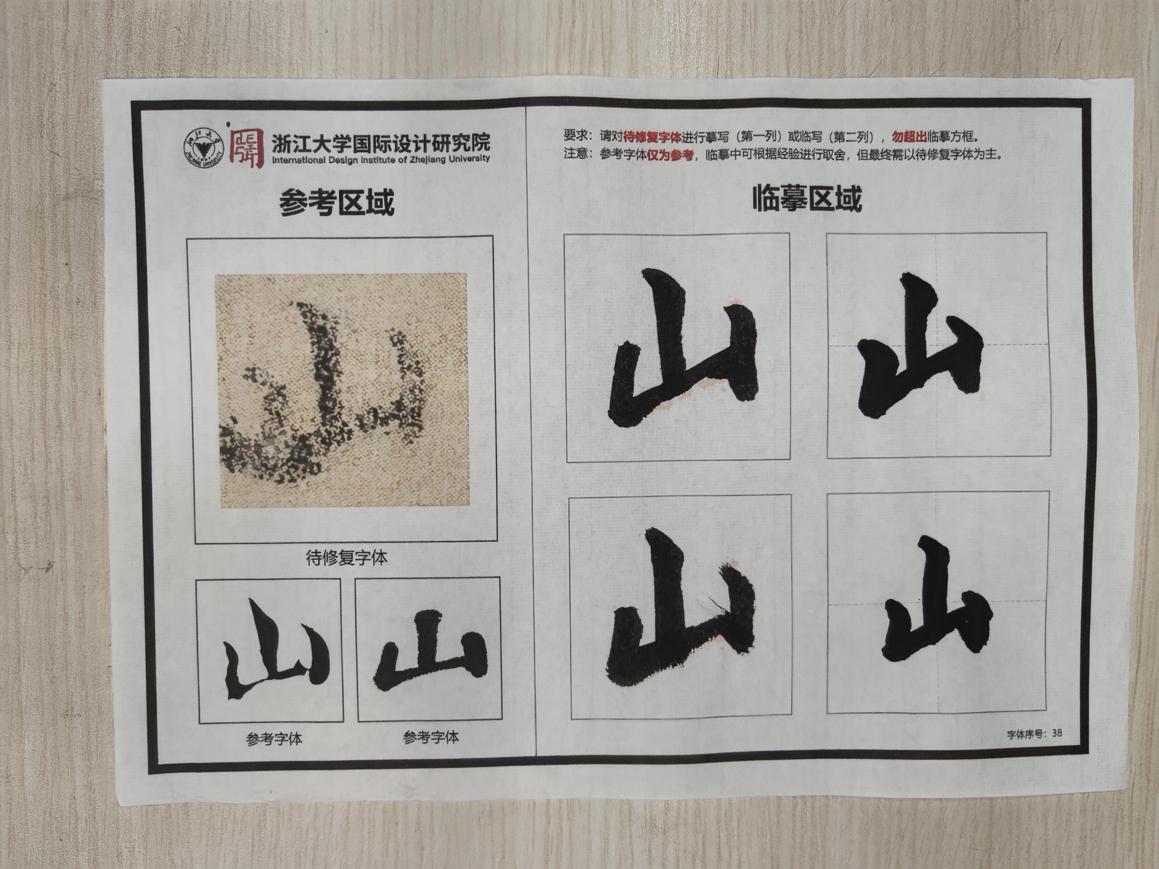 浙江大学国际设计研究院
International Design Institute of Zhejiang University
参考区域
山
待修复字体
山 山
参考字体 参考字体
要求：请对待修复字体进行摹写（第一列）或临写（第二列），勿超出临摹方框。
注意：参考字体仅为参考，临摹中可根据经验进行取舍，但最终需以待修复字体为主。
临摹区域
山 山
山 山
字体序号：38